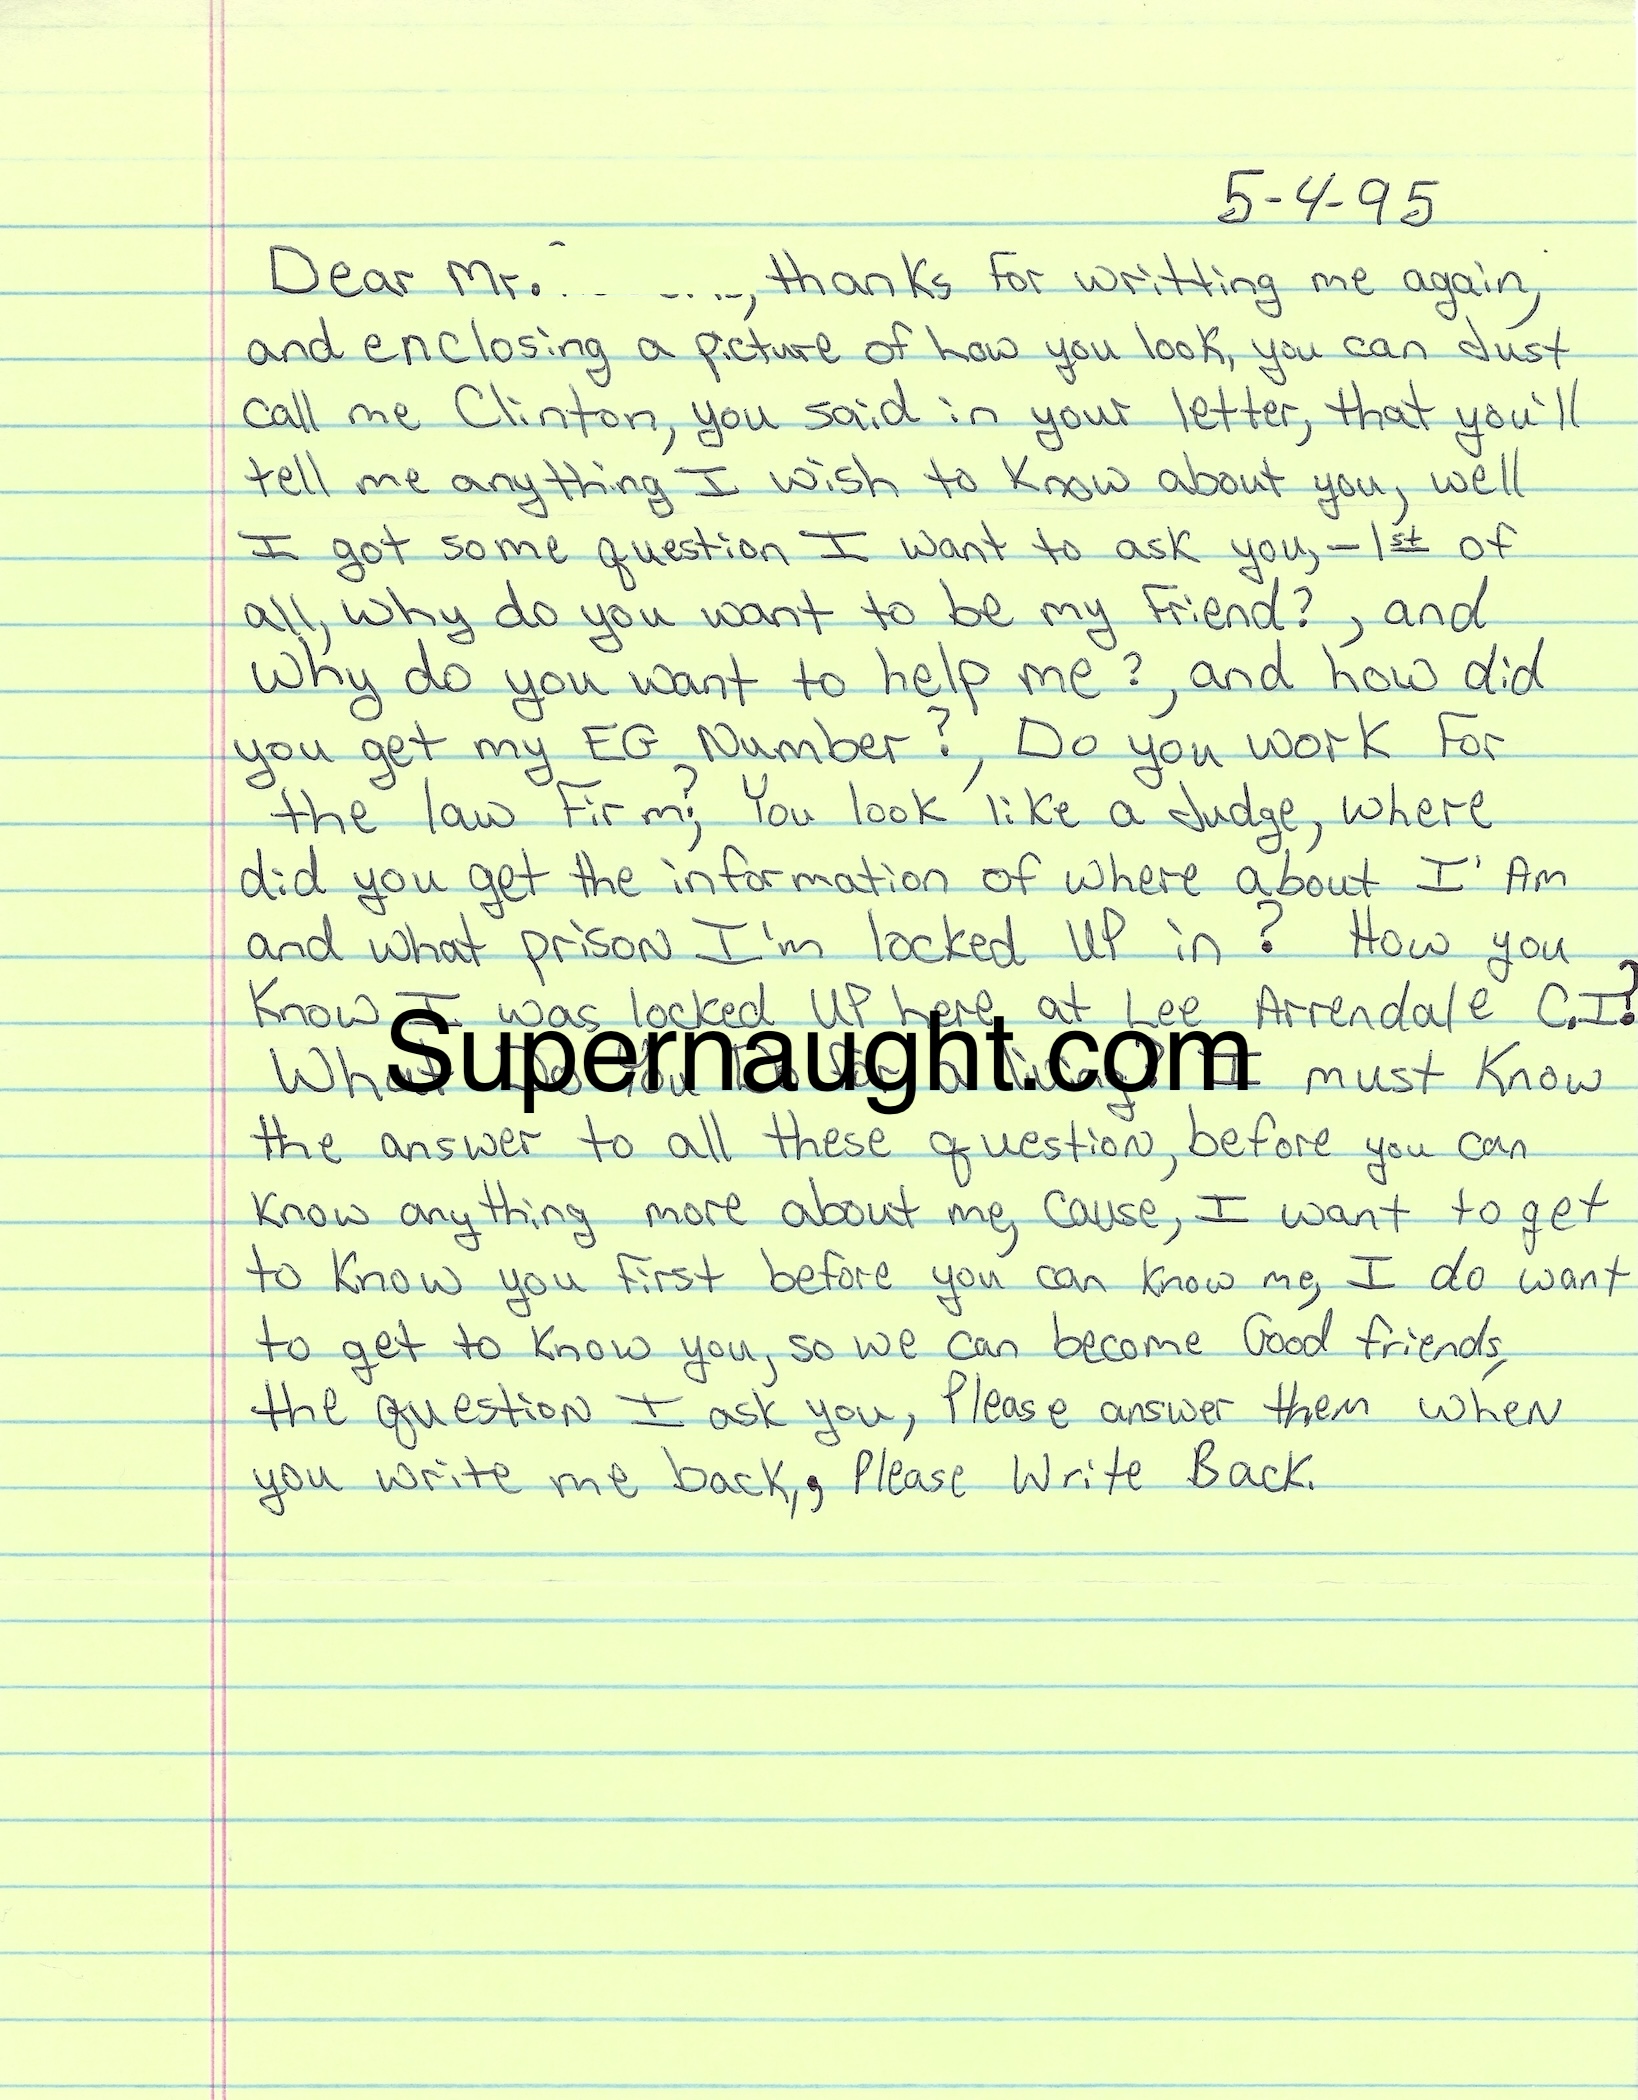 5-4-95
Dear Mr. , thanks for writting me again,
and enclosing a picture of how you look, you can Just
call me Clinton, you said in your letter, that you'll
tell me anything I wish to know about you, well
I got some question I want to ask you, - 1st of
all, why do you want to be my Friend?, and
why do you want to help me?, and how did
you get my EG Number?, Do you work For
the law Firm?, You look like a Judge, where
did you get the information of where about I' Am
and what prison I'm locked UP in? How you
Know I was locked UP here at Lee Arrendale C.I.?
Supernaught.com
What Do You Do for a living? I must Know
the answer to all these question, before you can
Know anything more about me, Cause, I want to get
to Know you First before you can Know me, I do want
to get to Know you, so we can become Good friends,
the question I ask you, Please answer them when
you write me back,, Please Write Back.